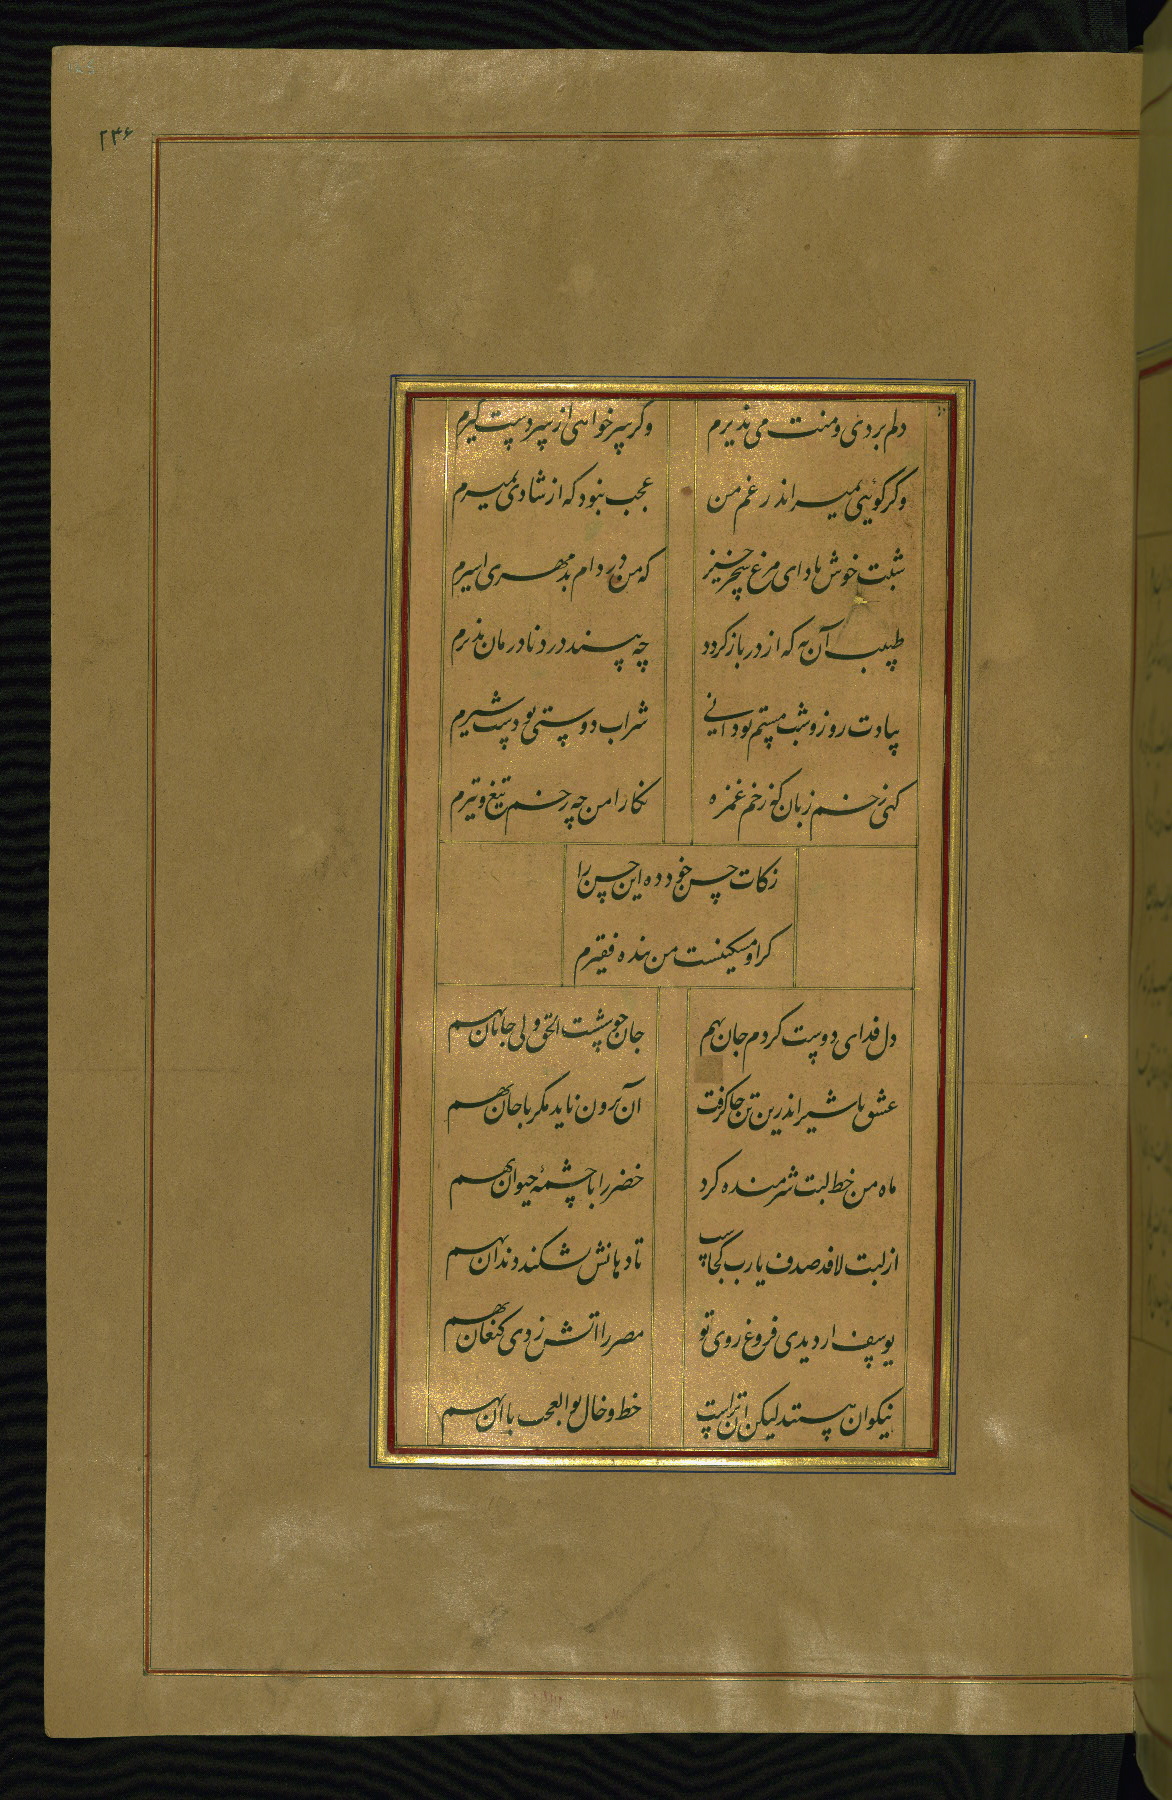 ۲۴۶
دلم بردی و منت می پذیرم
وگر سر خواهی از سر دست گیرم
وگر گوئی بمیر اندر غم من
عجب نبود که از شادی بمیرم
شبت خوش باد ای مرغ سحر خیز
که من در دام بدمهری اسیرم
طبیب آن به که از در باز گردد
چه بیند درد نادرمان پذیرم
بیادت روز و شب مستم تو دانی
شراب دوستی بودست شیرم
کنی زخم زبان کو زخم غمزه
نگارا من چه زخم تیغ و تیرم
زکات حسن خود ده این حسن را
کر او مسکینست من بنده فقیرم
دل فدای دوست کردم جان بهم
جان خوشست الحق ولی جانان بهم
عشق با شیر اندرین تن جا گرفت
آن برون ناید مگر با جان بهم
ماه من خط لبت شرمنده کرد
خضر را با چشمه حیوان بهم
از لبت لافد صدف یارب کجاست
تا دهانش بشکند دندان بهم
یوسف ار دیدی فروغ روی تو
مصر را اتش زدی کنعان بهم
نیکوان هستند لیکن آن تراست
خط و خال بوالعجب با آن بهم